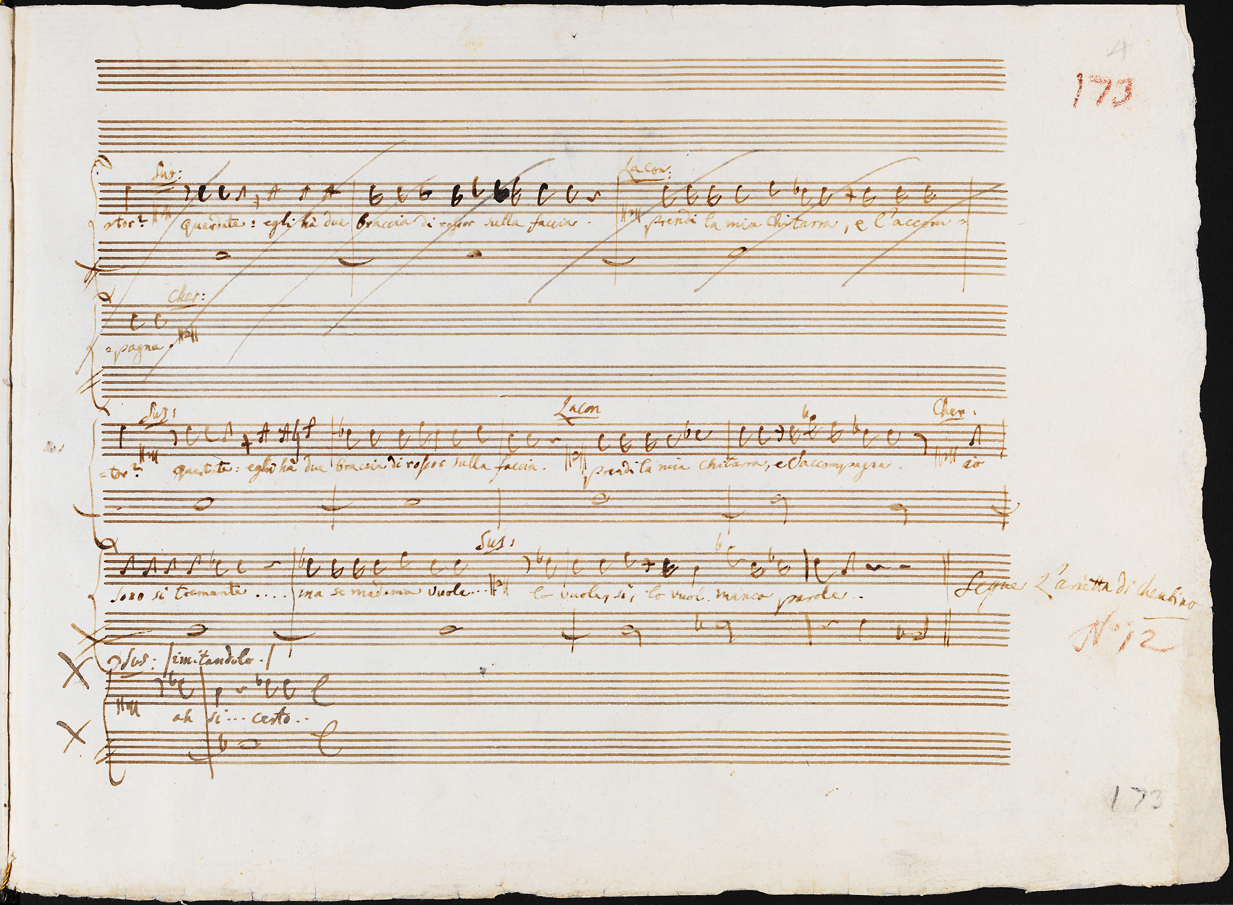 4
173
Sus: Lacon:
=tor? quersate: egli hà due braccia di rossor sulla faccia. prendi la mia chitarra, e l'accom=
Cher:
=pagna.
Sus: Lacon Cher.
=tor? questate: egli hà due braccia di rossor sulla faccia. prendi la mia chitarra, e l'accompagna. io
Sus:
sono si tremante .... ma se madama vuole... lo vuole, sì, lo vuol. manco parole..
Segue L'arietta di cherubino
No 12
Sus: /imitandolo./
ah si... certo..
173